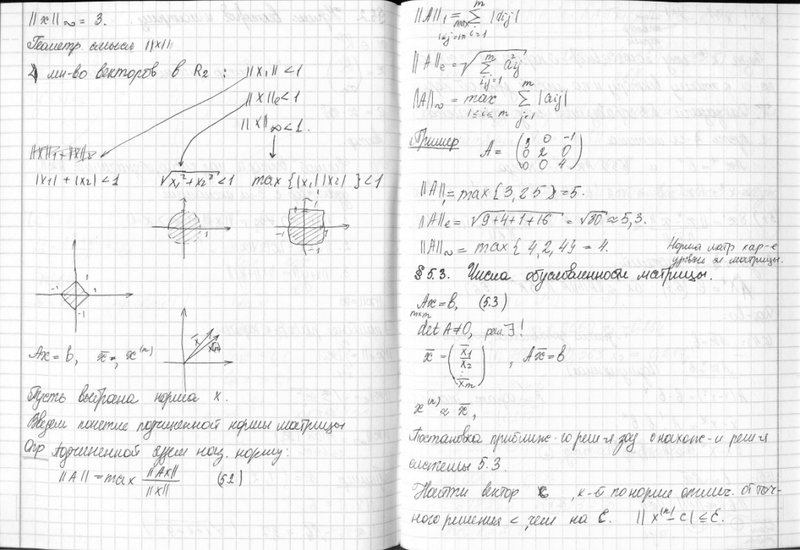 ||x||∞ = 3.
Геометр. смысл ||x||
мн-во векторов в R₂ : ||x₁|| < 1
||x||e < 1
||x||∞ < 1.
|x₁| + |x₂| < 1 √x₁² + x₂² < 1 max {|x₁| |x₂| } < 1
Ax = b, x̄ ≈, x⁽ⁿ⁾
Пусть выбрана норма x.
Введём понятие подчиненной нормы матрицы
Опр Подчиненной будем наз. норму:
||A|| = max ||Ax|| / ||x|| (5.2)
||A||₁ = max 1≤j≤m m∑i=1 |aij|
||A||e = √ m∑i,j=1 a²ij
||A||∞ = max 1≤i≤m m∑j=1 |aij|
Пример A = ( 3 0 -1
0 2 0
0 0 4 )
||A||₁ = max{3, 2 5} = 5.
||A||e = √9+4+1+16 = √30 ≈ 5,3.
||A||∞ = max { 4, 2, 4} = 4.
Норма матр хар-е
матрицы.
§ 5.3. Числа обусловленности матрицы.
Ax = b, (5.3)
m×m
det A ≠ 0, реш ∃!
x̄ = ( x̄₁ x̄₂ ⋮ x̄m ) , Ax̄ = b
x⁽ⁿ⁾ ≈ x̄,
Постановка приближ-го реш-я зад о нахожд-и реш-я
системы 5.3.
Найти вектор c, к-й по норме отлич. от точ-
ного решения <, чем на ε. ||x⁽ⁿ⁾ - c|| ≤ ε.